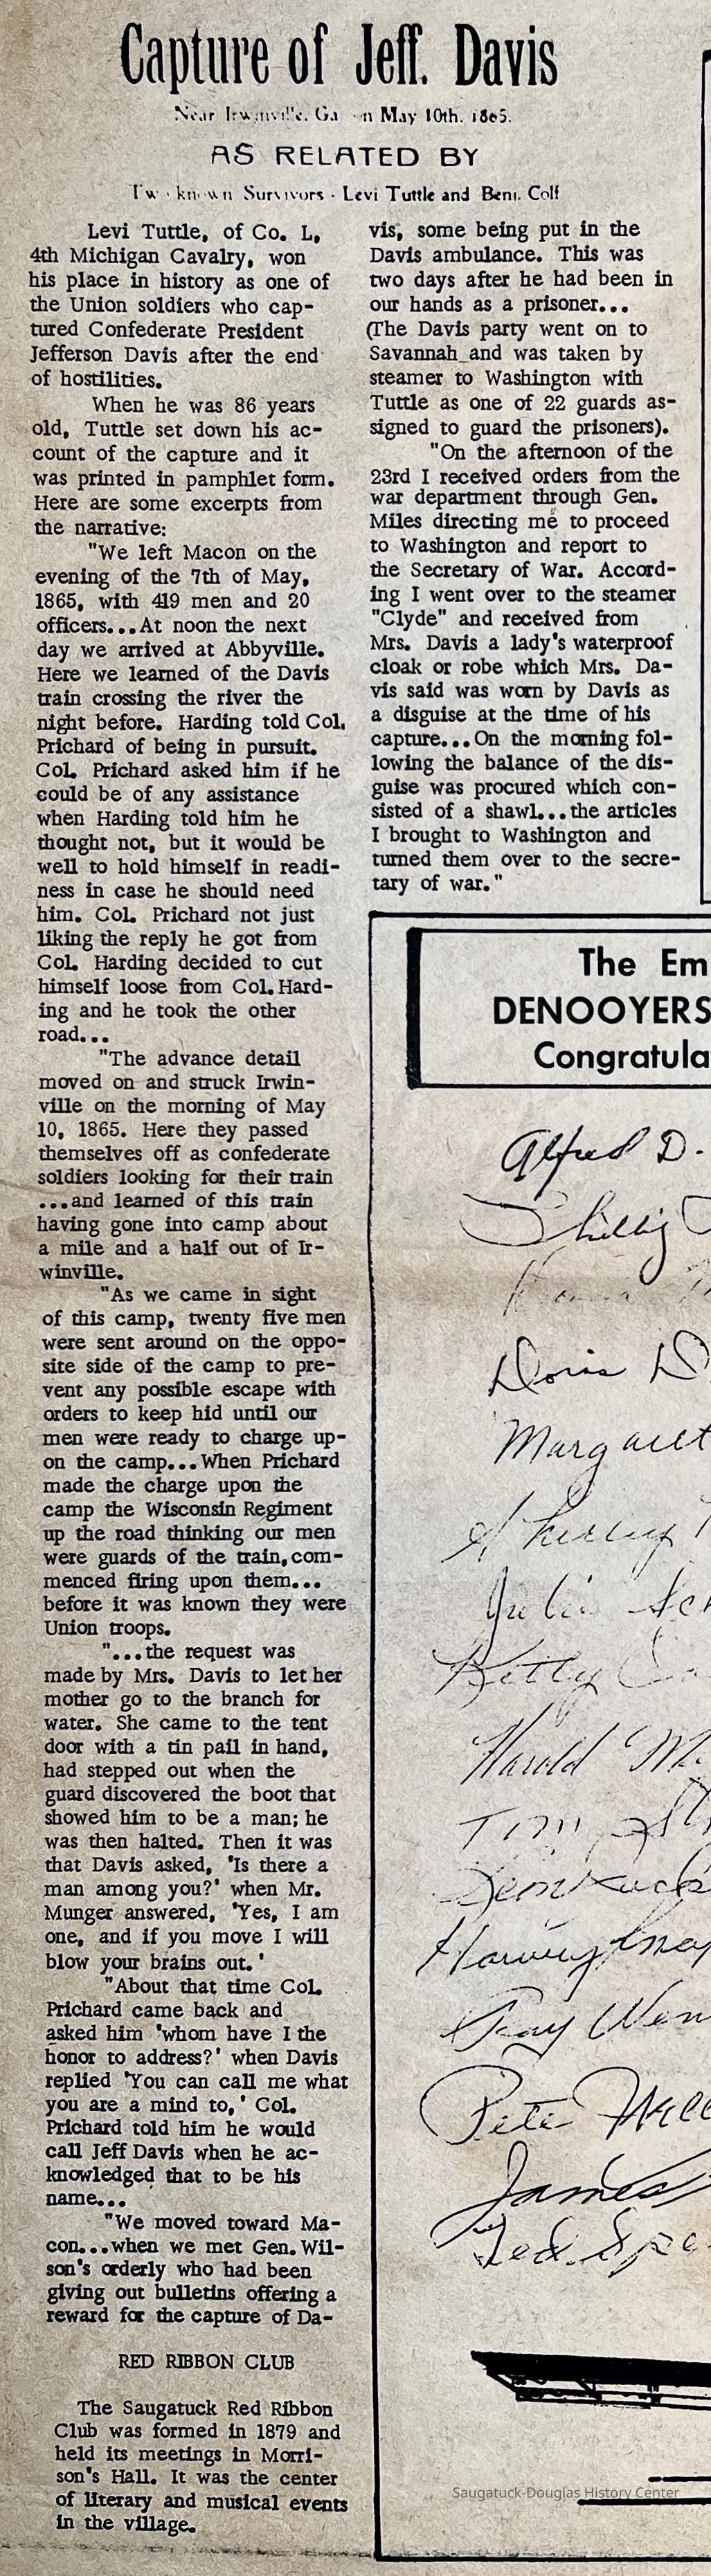 Capture of Jeff. Davis
Near Irwinville. Ga on May 10th. 1865.
AS RELATED BY
Two known Survivors - Levi Tuttle and Benj. Colf
Levi Tuttle, of Co. L,
4th Michigan Cavalry, won
his place in history as one of
the Union soldiers who cap-
tured Confederate President
Jefferson Davis after the end
of hostilities.
When he was 86 years
old, Tuttle set down his ac-
count of the capture and it
was printed in pamphlet form.
Here are some excerpts from
the narrative:
"We left Macon on the
evening of the 7th of May,
1865, with 419 men and 20
officers...At noon the next
day we arrived at Abbyville.
Here we learned of the Davis
train crossing the river the
night before. Harding told Col.
Prichard of being in pursuit.
Col. Prichard asked him if he
could be of any assistance
when Harding told him he
thought not, but it would be
well to hold himself in readi-
ness in case he should need
him. Col. Prichard not just
liking the reply he got from
Col. Harding decided to cut
himself loose from Col. Hard-
ing and he took the other
road...
"The advance detail
moved on and struck Irwin-
ville on the morning of May
10, 1865. Here they passed
themselves off as confederate
soldiers looking for their train
...and learned of this train
having gone into camp about
a mile and a half out of Ir-
winville.
"As we came in sight
of this camp, twenty five men
were sent around on the oppo-
site side of the camp to pre-
vent any possible escape with
orders to keep hid until our
men were ready to charge up-
on the camp...When Prichard
made the charge upon the
camp the Wisconsin Regiment
up the road thinking our men
were guards of the train, com-
menced firing upon them...
before it was known they were
Union troops.
"...the request was
made by Mrs. Davis to let her
mother go to the branch for
water. She came to the tent
door with a tin pail in hand,
had stepped out when the
guard discovered the boot that
showed him to be a man; he
was then halted. Then it was
that Davis asked, 'Is there a
man among you?' when Mr.
Munger answered, 'Yes, I am
one, and if you move I will
blow your brains out.'
"About that time Col.
Prichard came back and
asked him 'whom have I the
honor to address?' when Davis
replied 'You can call me what
you are a mind to,' Col.
Prichard told him he would
call Jeff Davis when he ac-
knowledged that to be his
name...
"We moved toward Ma-
con...when we met Gen. Wil-
son's orderly who had been
giving out bulletins offering a
reward for the capture of Da-
vis, some being put in the
Davis ambulance. This was
two days after he had been in
our hands as a prisoner...
(The Davis party went on to
Savannah and was taken by
steamer to Washington with
Tuttle as one of 22 guards as-
signed to guard the prisoners).
"On the afternoon of the
23rd I received orders from the
war department through Gen.
Miles directing me to proceed
to Washington and report to
the Secretary of War. Accord-
ing I went over to the steamer
"Clyde" and received from
Mrs. Davis a lady's waterproof
cloak or robe which Mrs. Da-
vis said was worn by Davis as
a disguise at the time of his
capture...On the morning fol-
lowing the balance of the dis-
guise was procured which con-
sisted of a shawl...the articles
I brought to Washington and
turned them over to the secre-
tary of war."
RED RIBBON CLUB
The Saugatuck Red Ribbon
Club was formed in 1879 and
held its meetings in Morri-
son's Hall. It was the center
of literary and musical events
in the village.
The Em
DENOOYERS
Congratula
Alfred D.
Doris D
Margaret
Shirley
Julia Sch
Kitty
Harold M
Tim
Harvey
Ray Wen
Pete
James
Ted Spe
Saugatuck-Douglas History Center